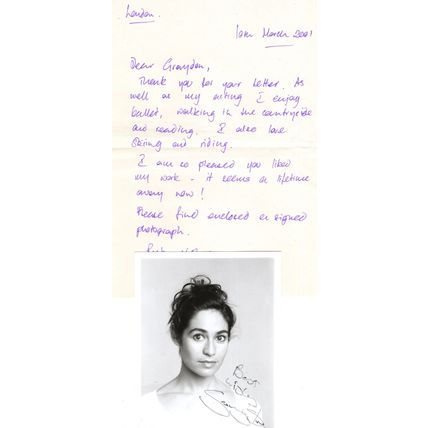 London.
March 2001
Dear Graydon,
Thank you for your letter. As
well as my acting I enjoy
ballet, walking in the countryside
and reading. I also love
skiing and riding.
I am so pleased you liked
my work - it seems a lifetime
away now!
Please find enclosed a signed
photograph.
Best